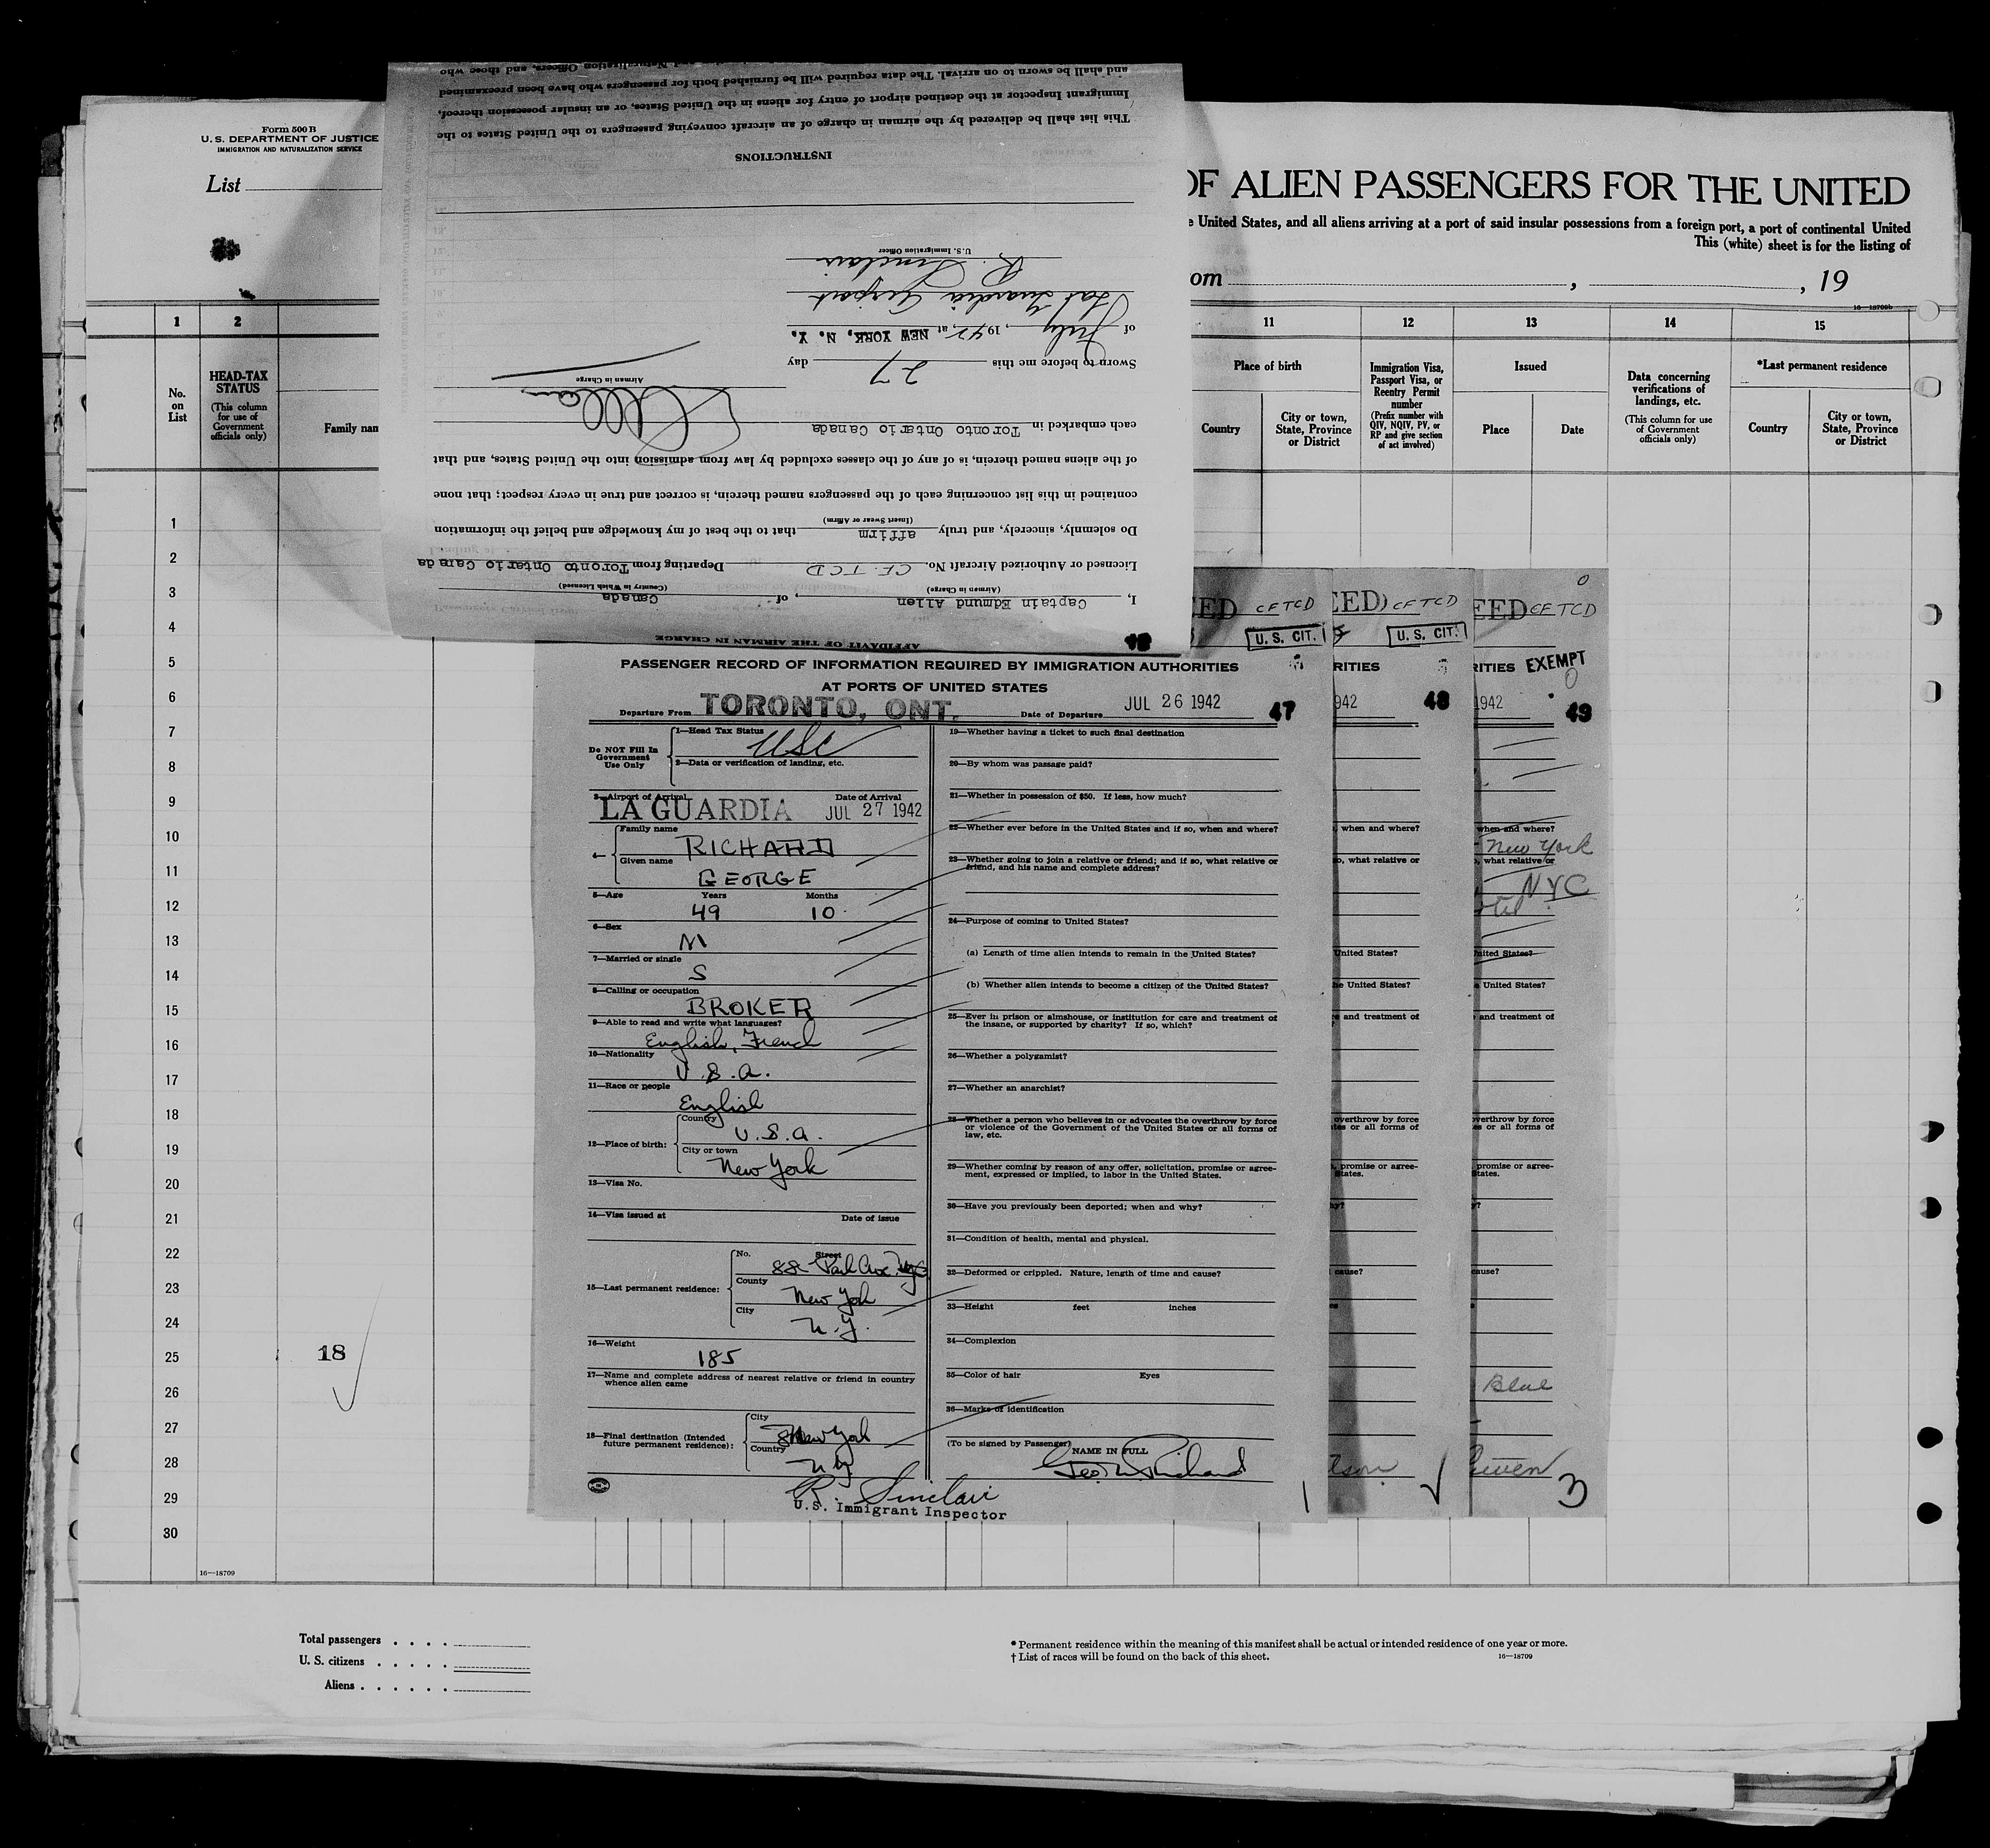 Form 500 B
U. S. DEPARTMENT OF JUSTICE
IMMIGRATION AND NATURALIZATION SERVICE
List
OF ALIEN PASSENGERS FOR THE UNITED
United States, and all aliens arriving at a port of said insular possessions from a foreign port, a port of continental United
This (white) sheet is for the listing of
om , , 19
16—18709b
1 2 11 12 13 14 15
No. on List
HEAD-TAX STATUS
(This column for use of Government officials only)
Family nam
Place of birth
Country
City or town, State, Province or District
Immigration Visa, Passport Visa, or Reentry Permit number
(Prefix number with QIV, NQIV, PV, or RP and give section of act involved)
Issued
Place
Date
Data concerning verifications of landings, etc.
(This column for use of Government officials only)
*Last permanent residence
Country
City or town, State, Province or District
1
2
3
4
5
6
7
8
9
10
11
12
13
14
15
16
17
18
19
20
21
22
23
24
25
26
27
28
29
30
18
16—18709
Total passengers
U. S. citizens
Aliens
* Permanent residence within the meaning of this manifest shall be actual or intended residence of one year or more.
† List of races will be found on the back of this sheet.
16—18709
AFFIDAVIT OF THE AIRMAN IN CHARGE
I, Captain Edmund Allen, of Canada
(Airman in Charge) (Country in Which Licensed)
Licensed or Authorized Aircraft No. CF. TCD Departing from Toronto Ontario Canada
Do solemnly, sincerely, and truly affirm that to the best of my knowledge and belief the information
(Insert Swear or Affirm)
contained in this list concerning each of the passengers named therein, is correct and true in every respect; that none
of the aliens named therein, is of any of the classes excluded by law from admission into the United States, and that
each embarked in Toronto Ontario Canada
Airman in Charge
Sworn to before me this 27 day
of July, 1942, at NEW YORK, N. Y.
La Guardia Airport
R. Sinclair
U. S. Immigration Officer
INSTRUCTIONS
This list shall be delivered by the airman in charge of an aircraft conveying passengers to the United States to the
Immigrant Inspector at the destined airport of entry for aliens in the United States, or an insular possession thereof,
and shall be sworn to on arrival. The data required will be furnished both for passengers who have been preexamined
Naturalization Officers, and those who
EED CF TCD
U. S. CIT.
PASSENGER RECORD OF INFORMATION REQUIRED BY IMMIGRATION AUTHORITIES
AT PORTS OF UNITED STATES
Departure From TORONTO, ONT. Date of Departure JUL 26 1942 47
Do NOT Fill In Government Use Only
1—Head Tax Status USC
2—Data or verification of landing, etc.
3—Airport of Arrival Date of Arrival
LA GUARDIA JUL 27 1942
4—
Family name RICHARD
Given name GEORGE
5—Age Years Months
49 10
6—Sex
M
7—Married or single
S
8—Calling or occupation
BROKER
9—Able to read and write what languages?
English, French
10—Nationality
U.S.A.
11—Race or people
English
12—Place of birth:
Country
U.S.A.
City or town
New York
13—Visa No.
14—Visa issued at Date of issue
15—Last permanent residence:
No. Street
Park Ave.
County
New York
City
N.Y.
16—Weight
185
17—Name and complete address of nearest relative or friend in country whence alien came
18—Final destination (Intended future permanent residence):
City
New York
Country
N.Y.
R. Sinclair
U.S. Immigrant Inspector
19—Whether having a ticket to such final destination
20—By whom was passage paid?
21—Whether in possession of $50. If less, how much?
22—Whether ever before in the United States and if so, when and where?
23—Whether going to join a relative or friend; and if so, what relative or
friend, and his name and complete address?
24—Purpose of coming to United States?
(a) Length of time alien intends to remain in the United States?
(b) Whether alien intends to become a citizen of the United States?
25—Ever in prison or almshouse, or institution for care and treatment of
the insane, or supported by charity? If so, which?
26—Whether a polygamist?
27—Whether an anarchist?
28—Whether a person who believes in or advocates the overthrow by force
or violence of the Government of the United States or all forms of
law, etc.
29—Whether coming by reason of any offer, solicitation, promise or agree-
ment, expressed or implied, to labor in the United States.
30—Have you previously been deported; when and why?
31—Condition of health, mental and physical.
32—Deformed or crippled. Nature, length of time and cause?
33—Height feet inches
34—Complexion
35—Color of hair Eyes
36—Marks of identification
(To be signed by Passenger) NAME IN FULL
Geo. Richard
1
EED) CF TCD
U. S. CIT.
RITIES
942 48
when and where?
what relative or
United States?
United States?
and treatment of
overthrow by force
or all forms of
promise or agree-
States.
cause?
EED CF TCD
0
RITIES EXEMPT
0
1942 49
when and where?
New York
what relative or
NYC
United States?
United States?
and treatment of
overthrow by force
or all forms of
promise or agree-
States.
cause?
Blue
3